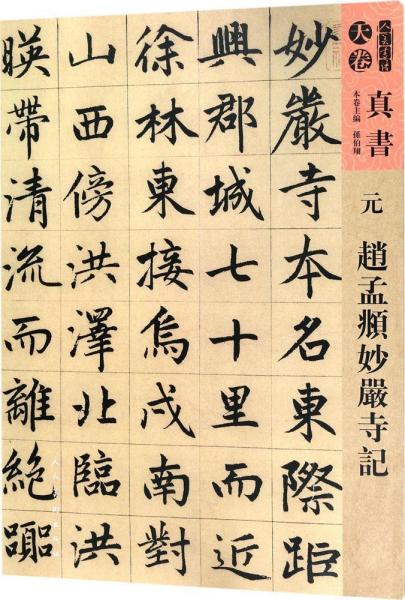 人美書譜
天卷
真書
本卷主編 孫伯翔
元 趙孟頫妙嚴寺記
妙嚴寺本名東際距
興郡城七十里而近
徐林東接烏戍南對
山西傍洪澤北臨洪
暎帶清流而離絶